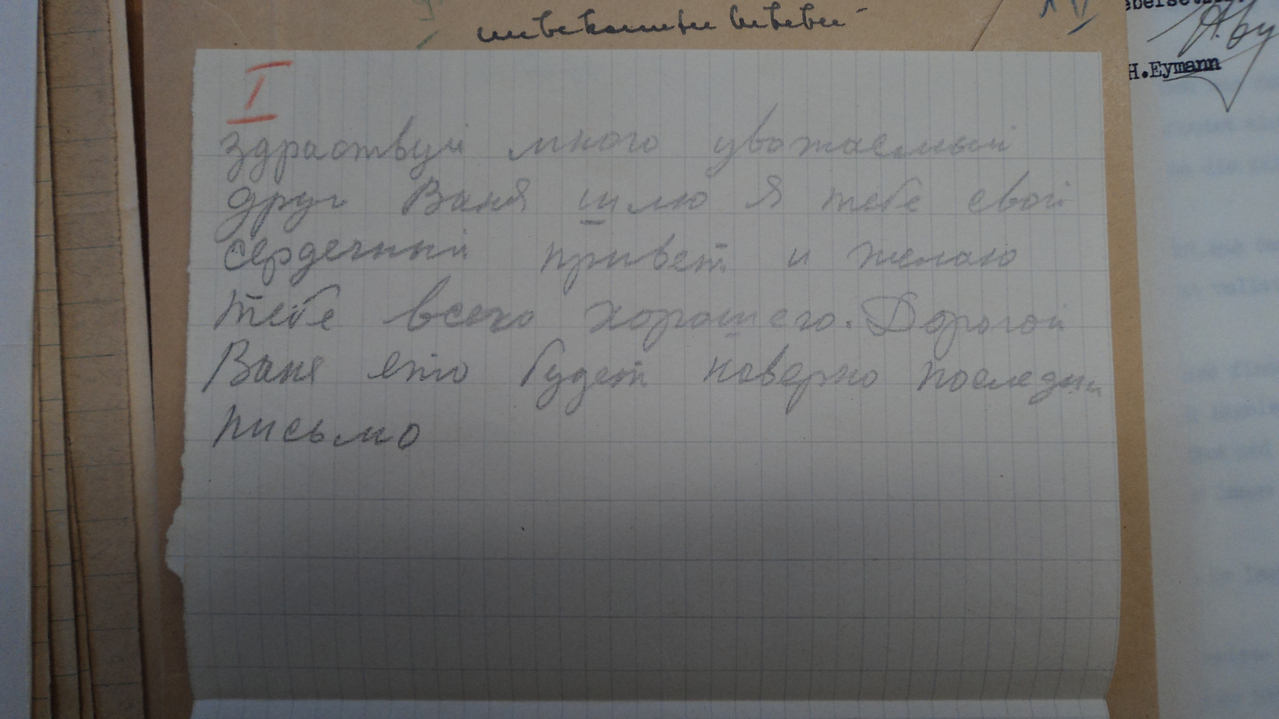 I
здраствуй много уважаемый
друг Ваня шлю я тебе свой
сердечный привет и желаю
тебе всего хорошего. Дорогой
Ваня ето будет наверно последни
письмо
H. Eymann